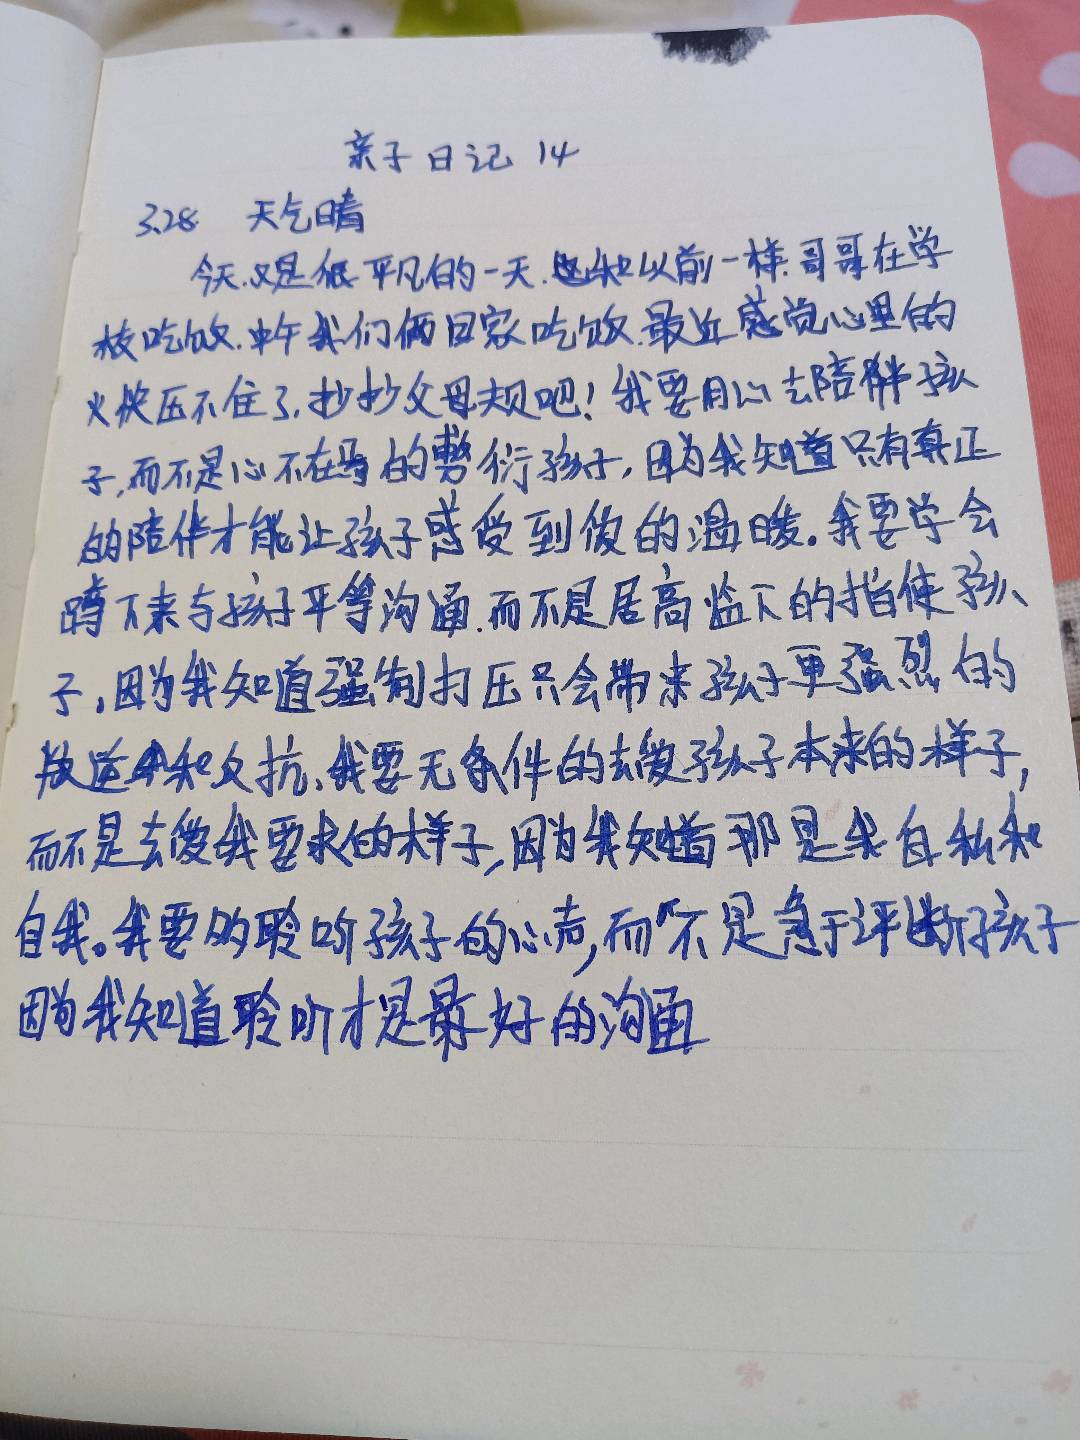 亲子日记 14
3.28 天气晴
今天又是很平凡的一天.和以前一样.哥哥在学
校吃饭.中午我们俩回家吃饭.最近感觉心里的
火快压不住了,抄抄父母规吧!我要用心去陪伴孩
子,而不是心不在焉的敷衍孩子,因为我知道只有真正
的陪伴才能让孩子感受到爱的温暖。我要学会
蹲下来与孩子平等沟通.而不是居高监下的指使孩
子,因为我知道强制打压只会带来孩子更强烈的
叛逆和反抗、我要无条件的去爱孩子本来的样子,
而不是去爱我要求的样子,因为我知道那是我自私和
自我。我要多聆听孩子的心声,而不是急于评断孩子
因为我知道聆听才是最好的沟通